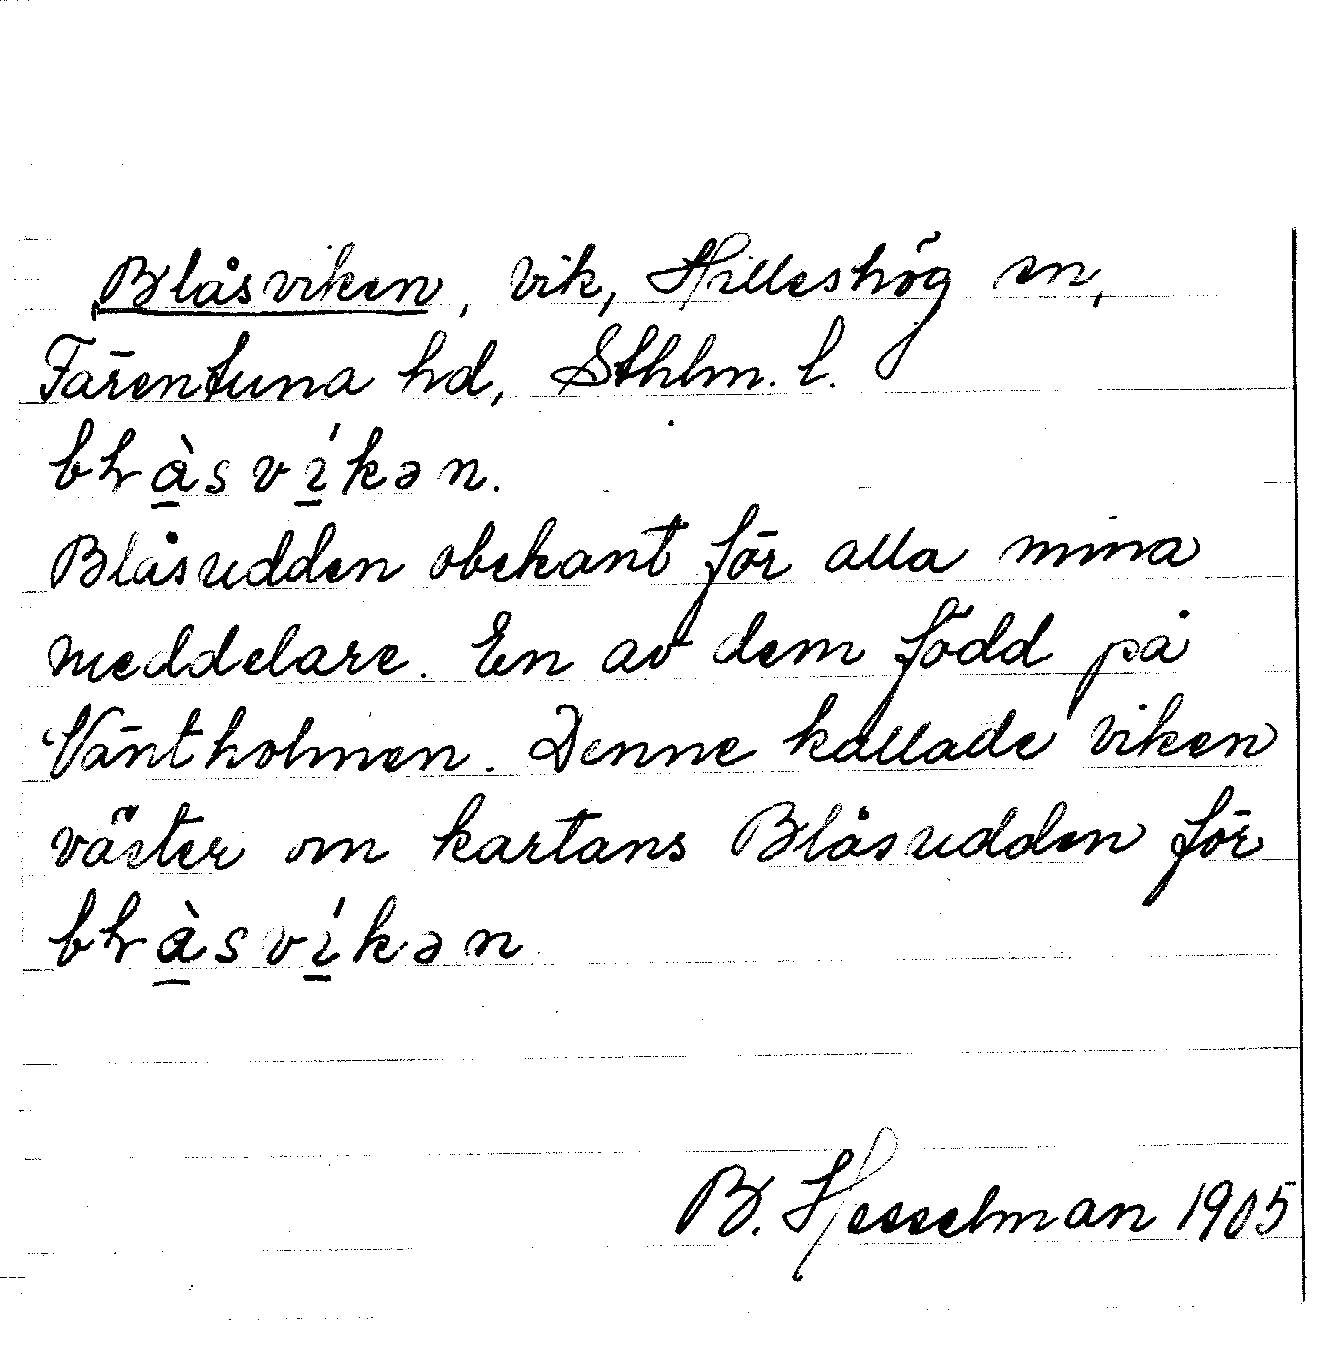 Blåsviken, vik, Hilleshög sn,
Färentuna hd, Sthlm. l.
bɬàsvíkən.
Blåsudden obekant för alla mina
meddelare. En av dem född på
Väntholmen. Denne kallade viken
väster om kartans Blåsudden för
bɬàsvíkən
B. Hesselman 1905